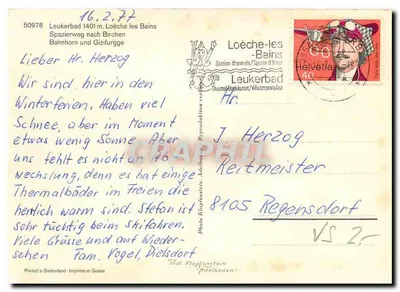 16.2.77
50978 Leukerbad 1401 m. Loèche les Bains
Spazierweg nach Birchen
Balmhorn und Gizifurgge
Lieber Hr. Herzog
Wir sind hier in den
Winterferien. Haben viel
Schnee, aber im Moment
etwas wenig Sonne. Aber
uns fehlt es nicht an Ab
wechslung, denn es hat einige
Thermalbäder im Freien die
herrlich warm sind. Stefan ist
sehr tüchtig beim Skifahren.
Viele Grüsse und auf Wieder-
sehen Fam. Vogel, Dielsdorf
Printed in Switzerland - Imprimé en Suisse
Photo Klopfenstein, Adelboden
Phot Klopfenstein
Adelboden
Loèche-les
-Bains
Leukerbad
Helvetia
40
Hr.
J. Herzog
Reitmeister
8105 Regensdorf
VS 2.-